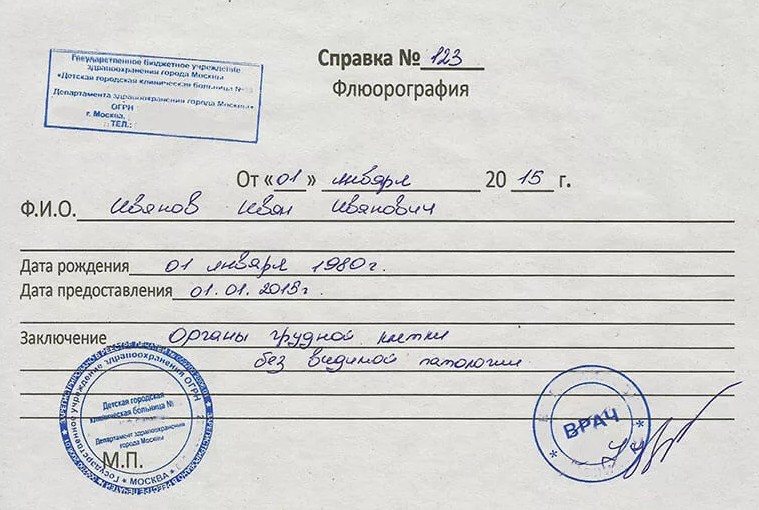 Государственное бюджетное учреждение
здравоохранения города Москвы
«Детская городская клиническая больница №
Департамента здравоохранения города Москвы»
ОГРН
г. Москва,
ТЕЛ.:
Справка № 123
Флюорография
От «01» января 2015 г.
Ф.И.О. Иванов Иван Иванович
Дата рождения 01 января 1980 г.
Дата предоставления 01.01.2015г.
Заключение Органы грудной клетки
без видимой патологии
Государственное учреждение здравоохранения ОГРН
* МОСКВА *
Детская городская
клиническая больница №
Департамент здравоохранения
города Москвы
М.П.
ВРАЧ